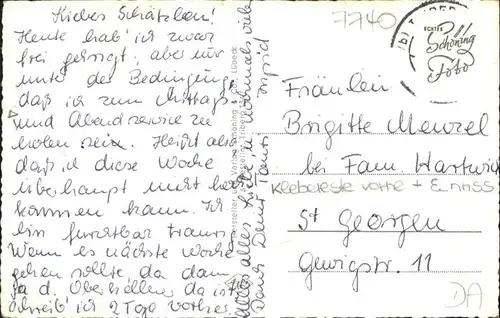 Liebes Schätzlein!
Heute hab' ich zwar
frei gekriegt, aber nur
unter der Bedingung
daß ich zum Mittags
und Abendservice zu
holen sein. Heißt also
daß ich diese Woche
überhaupt nicht her
kommen kann. Ich
bin furchtbar traurig
Wenn es nächste Woche
gehen sollte, da dann
ja d. Oberkellner da ist
schreib' ich 2 Tage vorher.
Alles alles Liebe u. nochmals vielen
Dank Deine Tanti Ingrid
7740
ECHTES
Schöning
Foto
Fräulein
Brigitte Menzel
bei Fam. Hartwig
Klebereste vorne + E nass
St Georgen
Gewigstr. 11
DA